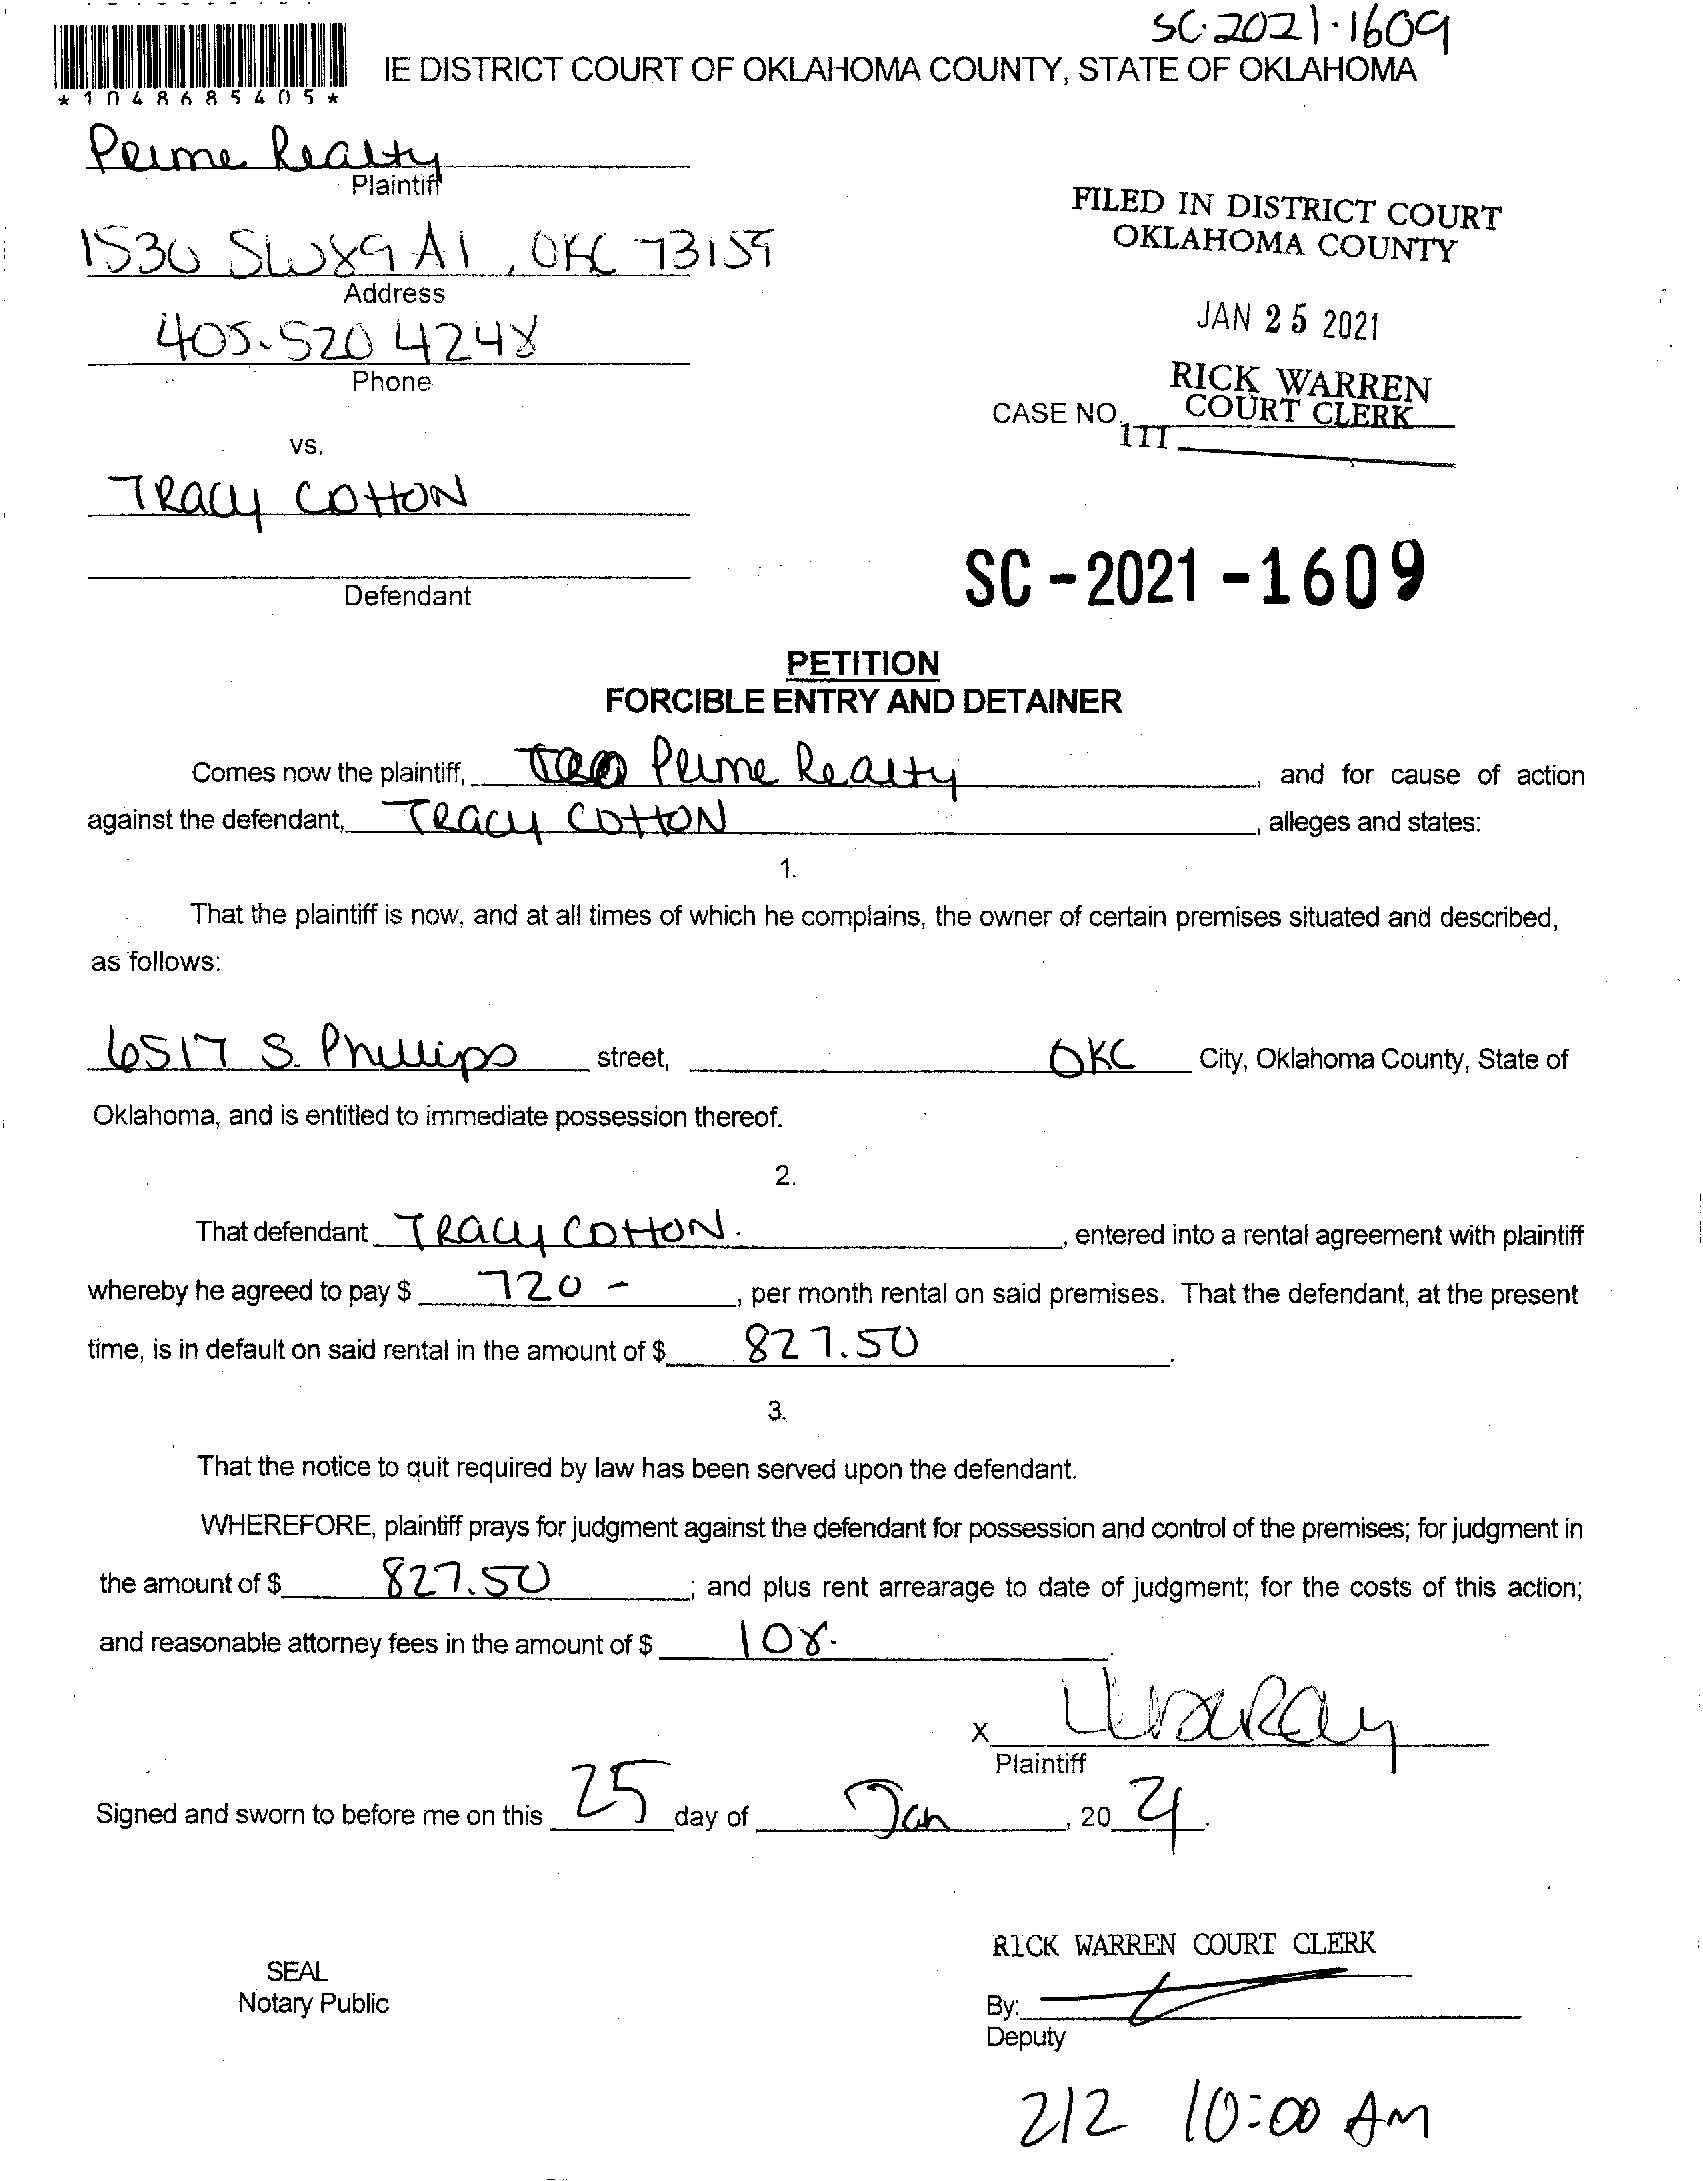 SC-2021-1609
IE DISTRICT COURT OF OKLAHOMA COUNTY, STATE OF OKLAHOMA
*1048685405*
Prime Realty
Plaintiff
FILED IN DISTRICT COURT
OKLAHOMA COUNTY
1530 SW 89 A1, OKC 73159
Address
JAN 25 2021
405-520 4248
Phone
RICK WARREN
COURT CLERK
CASE NO.
111
vs.
Tracy Cotton
Defendant
SC-2021-1609
PETITION
FORCIBLE ENTRY AND DETAINER
Comes now the plaintiff, Prime Realty, and for cause of action
against the defendant, Tracy Cotton, alleges and states:
1.
That the plaintiff is now, and at all times of which he complains, the owner of certain premises situated and described,
as follows:
6517 S. Phillips street, OKC City, Oklahoma County, State of
Oklahoma, and is entitled to immediate possession thereof.
2.
That defendant Tracy Cotton., entered into a rental agreement with plaintiff
whereby he agreed to pay $ 720 -, per month rental on said premises. That the defendant, at the present
time, is in default on said rental in the amount of $ 827.50.
3.
That the notice to quit required by law has been served upon the defendant.
WHEREFORE, plaintiff prays for judgment against the defendant for possession and control of the premises; for judgment in
the amount of $ 827.50; and plus rent arrearage to date of judgment; for the costs of this action;
and reasonable attorney fees in the amount of $ 108-.
X
Plaintiff
Signed and sworn to before me on this 25 day of Jan, 20 21.
RICK WARREN COURT CLERK
SEAL
Notary Public
By:
Deputy
212 10:00 AM